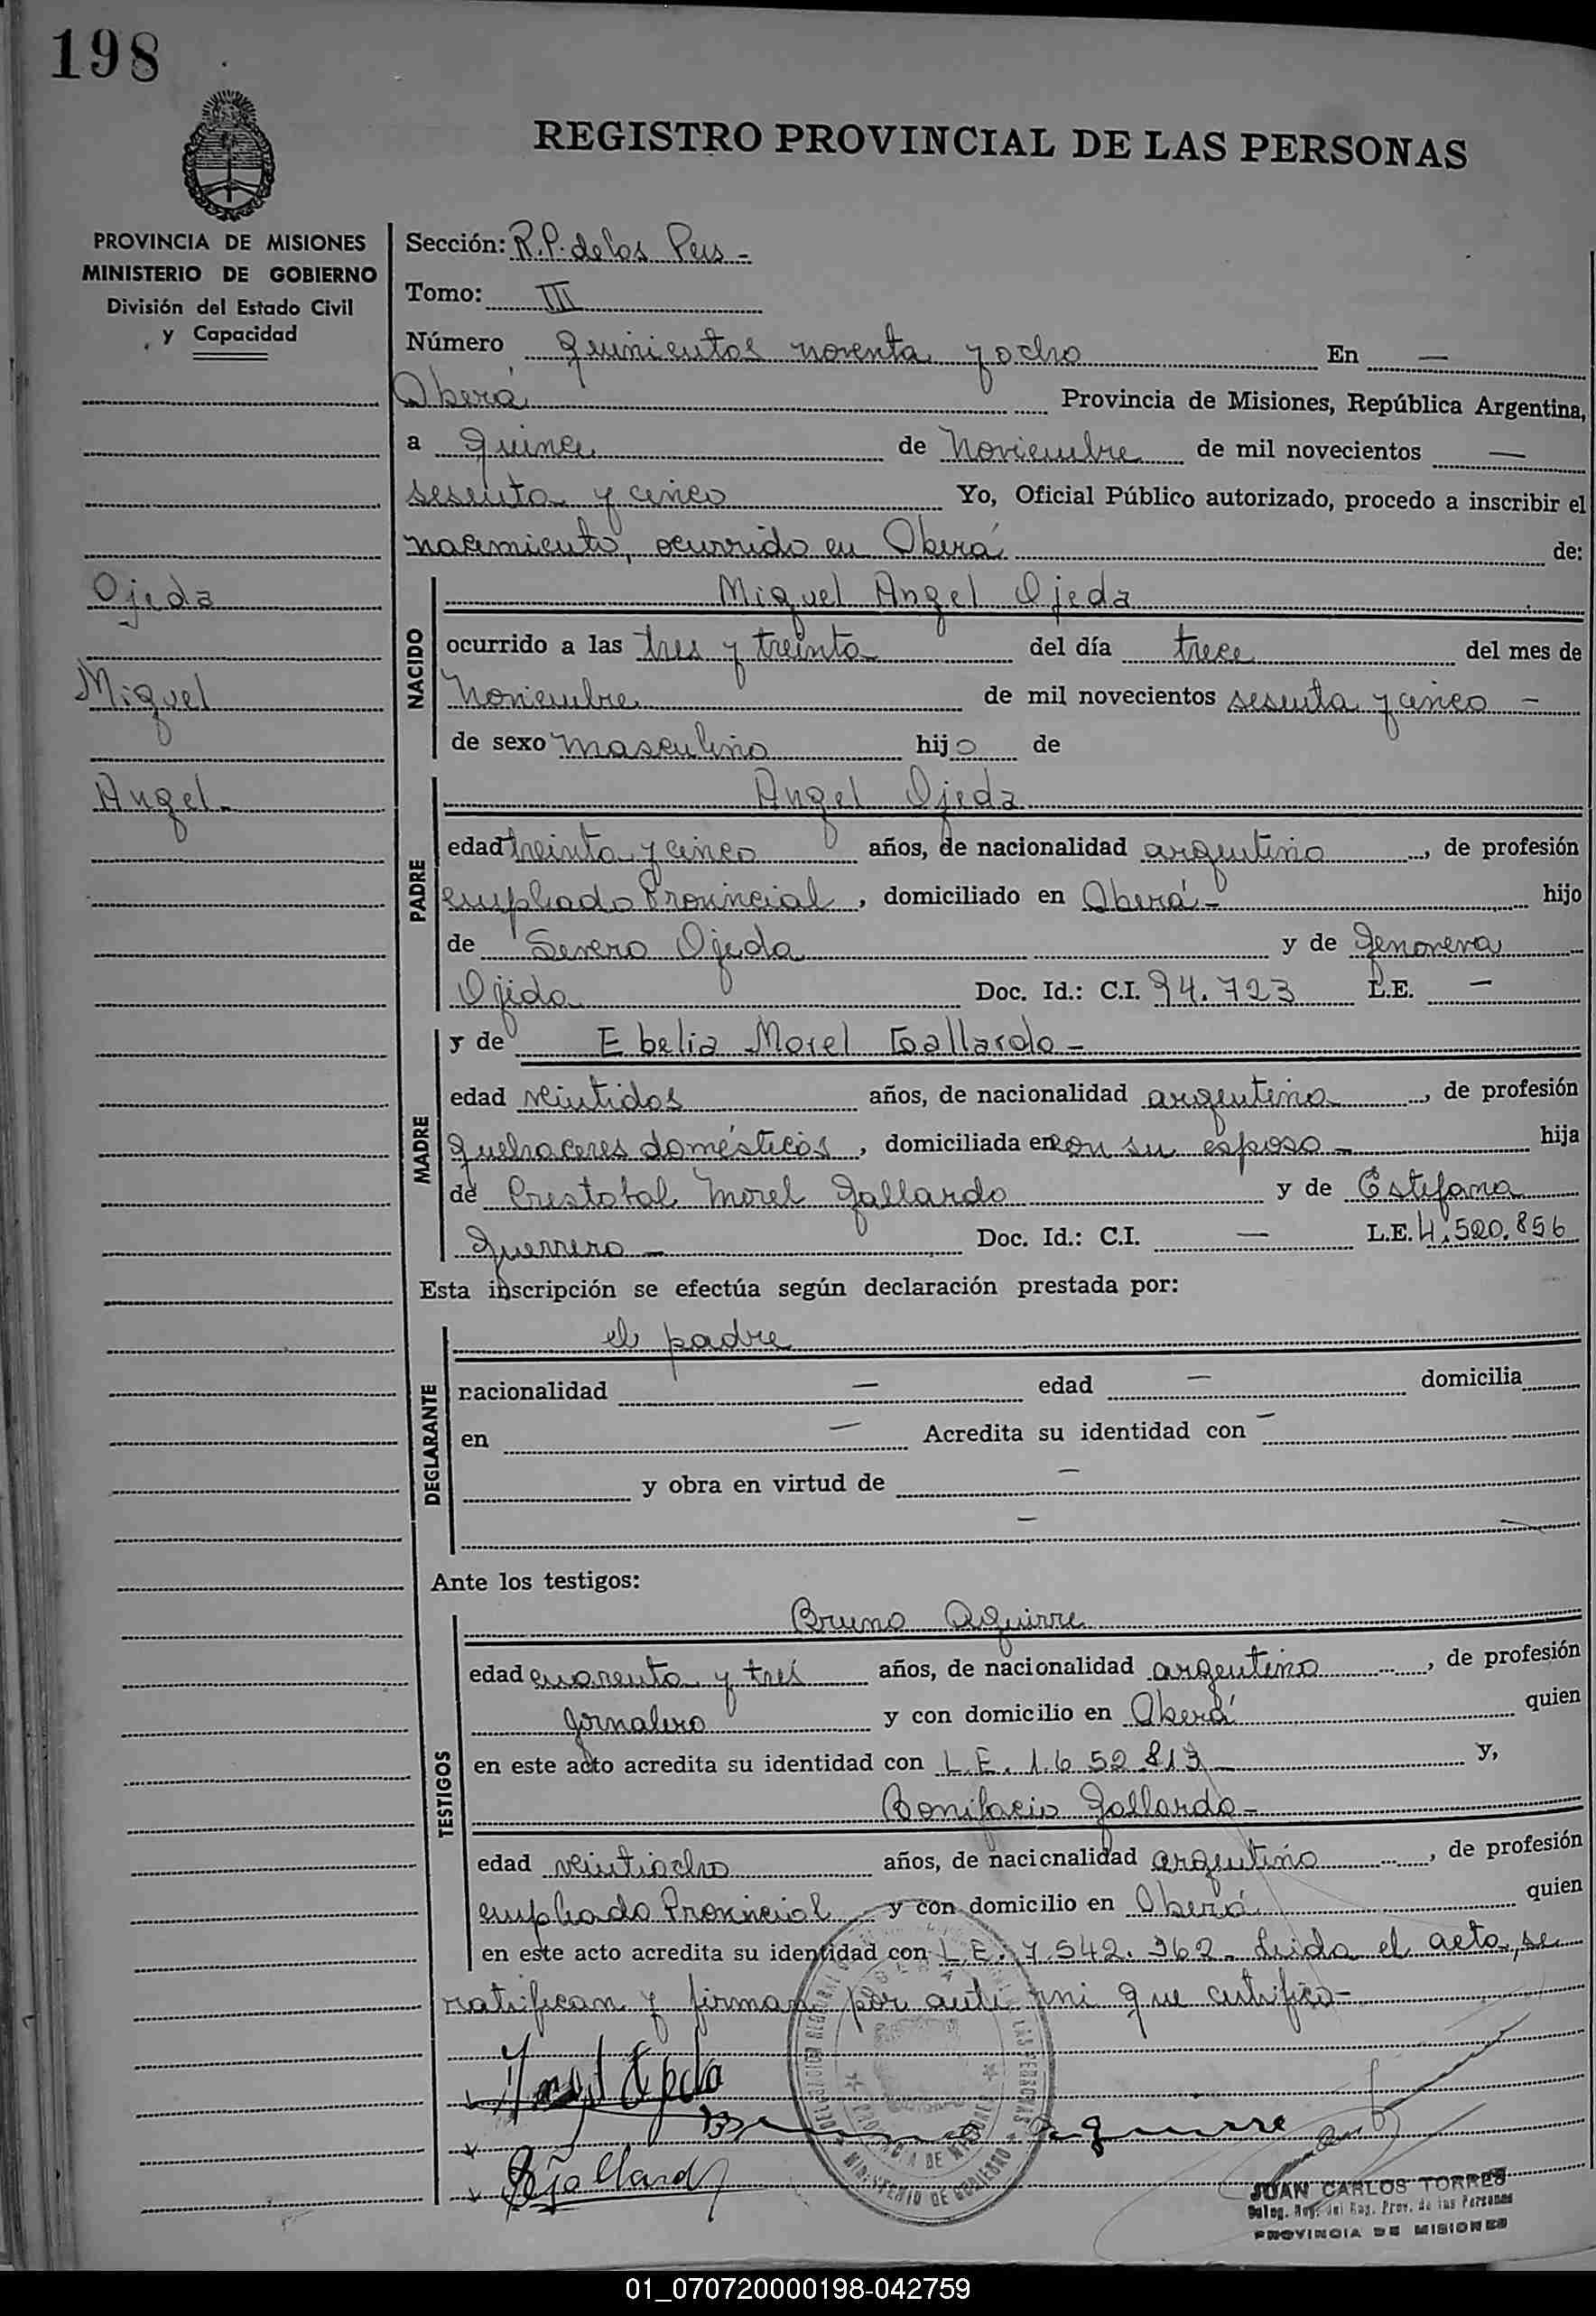 198
REGISTRO PROVINCIAL DE LAS PERSONAS
PROVINCIA DE MISIONES
MINISTERIO DE GOBIERNO
División del Estado Civil
y Capacidad
Ojeda
Miguel
Angel.-
Sección: R.P. de las Pers -
Tomo: III
Número quinientos noventa y ocho En —
Oberá Provincia de Misiones, República Argentina,
a quince de Noviembre de mil novecientos —
sesenta y cinco Yo, Oficial Público autorizado, procedo a inscribir el
nacimiento, ocurrido en Oberá de:
NACIDO
Miguel Angel Ojeda
ocurrido a las tres y treinta del día trece del mes de
Noviembre de mil novecientos sesenta y cinco -
de sexo masculino hijo de
PADRE
Angel Ojeda
edad treinta y cinco años, de nacionalidad argentino, de profesión
empleado Provincial, domiciliado en Oberá - hijo
de Severo Ojeda y de Genoveva
Ojeda Doc. Id.: C.I. 94.723 L.E. —
MADRE
y de Ebelia Morel Gallardo -
edad veintidos años, de nacionalidad argentina, de profesión
quehaceres domésticos, domiciliada en con su esposo - hija
de Cristobal Morel Gallardo y de Estefana
Guerrero - Doc. Id.: C.I. — L.E. 4.520.856
Esta inscripción se efectúa según declaración prestada por:
DECLARANTE
el padre
nacionalidad — edad — domicilia
en — Acredita su identidad con —
y obra en virtud de —
—
Ante los testigos:
TESTIGOS
Bruno Aguirre
edad cuarenta y tres años, de nacionalidad argentino, de profesión
Jornalero y con domicilio en Oberá quien
en este acto acredita su identidad con L.E. 1.652.813 - y,
Bonifacio Gallardo -
edad veintiocho años, de nacionalidad argentino, de profesión
empleado Provincial y con domicilio en Oberá quien
en este acto acredita su identidad con L.E. 7.542.362 - Leida el acta, se
ratifican y firman por ante mi que certifico -
Angel Ojeda
Bruno Aguirre
Gallardo
PROVINCIA DE MISIONES
MINISTERIO DE GOBIERNO
JUAN CARLOS TORRES
Deleg. Reg. del Reg. Prov. de las Personas
PROVINCIA DE MISIONES
01_070720000198-042759